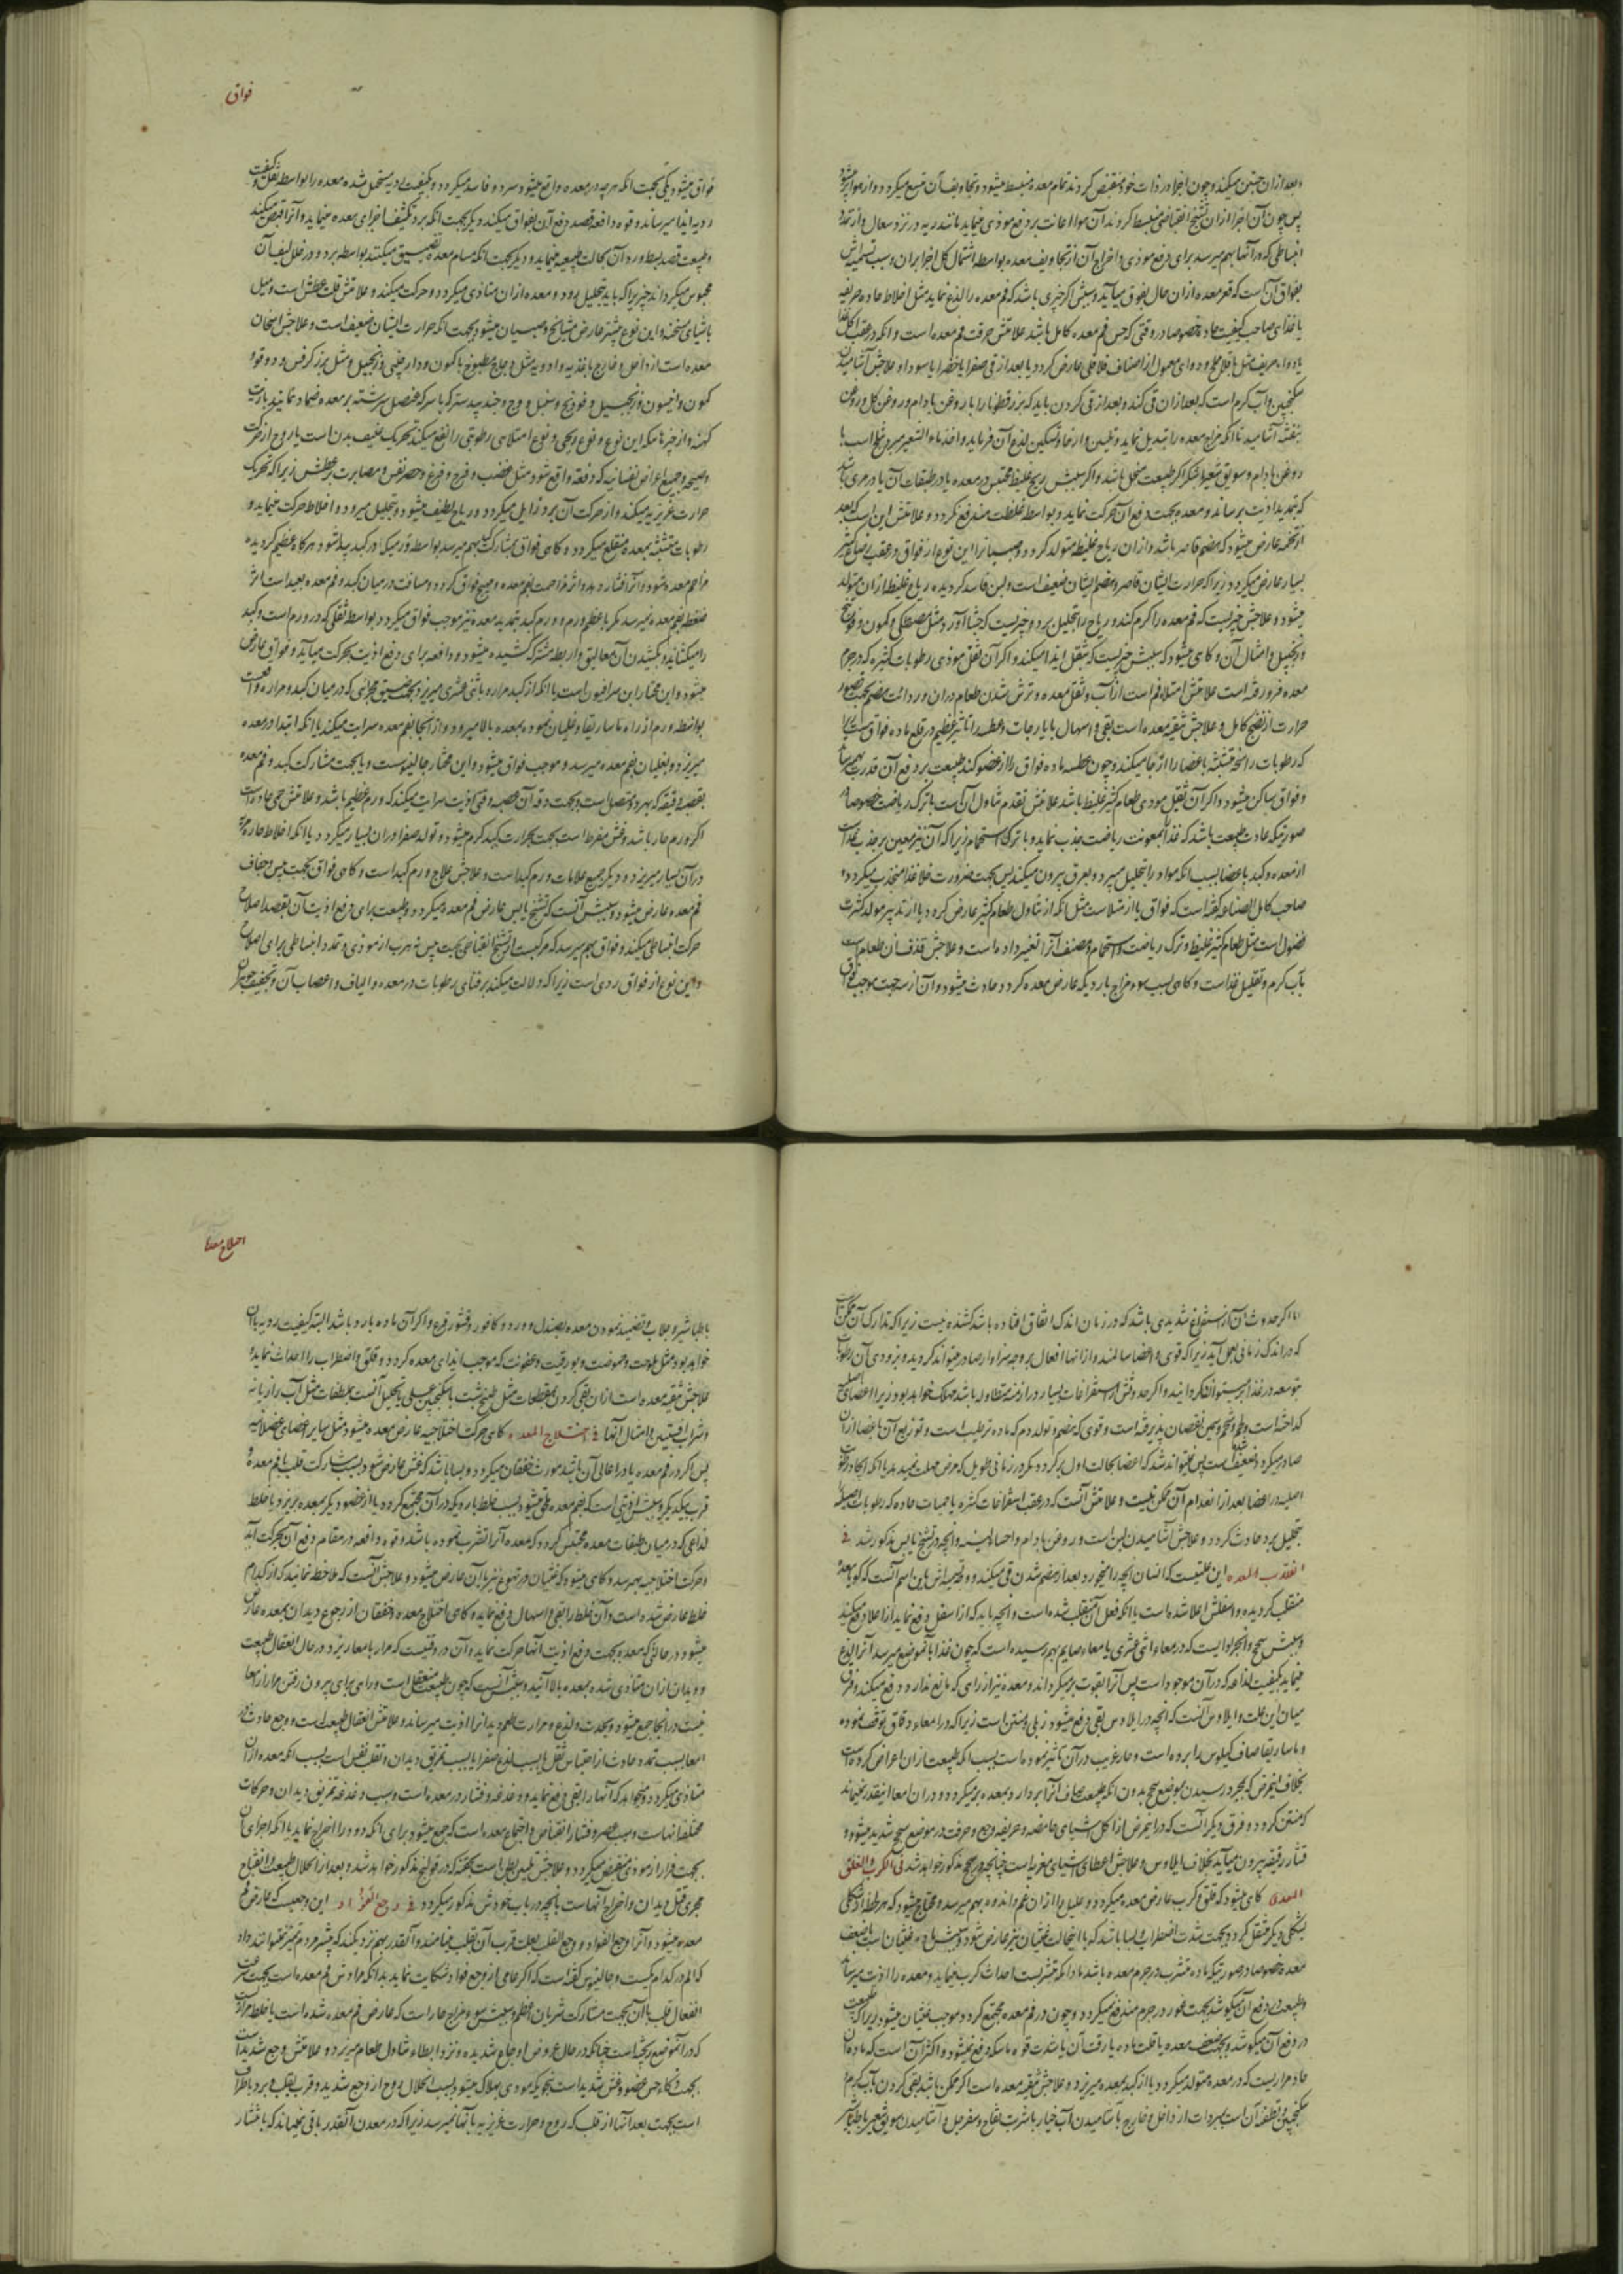 بعد ازان حنین میکند و چون اجزا در ذات خود منقبض کردند تمام معده منبسط میشود و تجاویف آن متسع میکردد و از هوا پر میشود
پس چون آن اجزا ازان تشنج انقباضی منبسط کردند آن هوا اعانت بر دفع موذی مینماید مانند ریه در نزد سعال و از تمدد
انبساطی که در آنها بهم میرسد برای دفع موذی و اخراج آن از تجاویف معده بواسطه اشتمال کل اجزا بران و سبب تسمیه اش
بفواق آن است که قعر معده ازان حال بفوق میآید و سببش اکر چیزی باشد که فم معده را لذع نماید مثل اخلاط حاده حریفه
یا غذای صاحب کیفیت حاد خصوصا در وقتی که حس فم معده کامل باشد علامتش حرقت فم معده است و آنکه در عقب اکل غذا
سکنجبین و آب کرم است که بعد ازان قی کند و بعد از قی کردن باید که بزرقطونا را با روغن بادام و روغن کل و روغن
بنفشه آشامید تا آنکه مزاج معده را تبدیل نماید
روغن بادام و سویق شعیر و شکر اکر طبیعت منحل باشد و اکر سببش ریح غلیظ محتبس در معده یا در طبقات آن یا در مری باشد
که تمدید اذیت برساند و معده بجهت دفع آن حرکت نماید و بواسطه غلظت مندفع نکردد و علامتش این است که بعد
از تخمه عارض میشود که هضم قاصر باشد و ازان ریاح غلیظه متولد کردد
بسیار عارض میکردد زیرا که حرارت ایشان قاصر و هضم ایشان ضعیف است و لبن فاسد کردیده ریاح غلیظ ازان متولد
میشود و علاجش چیزیست که فم معده را کرم کند و ریاح را بتحلیل برد و چیزیست که جشا آورد مثل مصطکی و کمون و فودنج
و زنجبیل و امثال آن و کاهی میشود که سببش چیزیست که بثقل ایذا میکند و اکر آن ثقل موذی رطوبات کثیره که در جرم
معده فرو رفته است علامتش امتلاء فم است از آب و ثقل معده و ترش شدن طعام دران
حرارت از نضج کامل و علاجش تنقیه معده است بقی و اسهال بایارجات و عطسه را تاثیر عظیم در قلع ماده فواق
که رطوبات راسخه متشبثه باعضا را ازعاج میکند و چون عطسه ماده فواق را از عضو کند طبیعت بر دفع آن قدرت
و فواق ساکن میشود و اکر آن ثقیل موذی طعام کثیر غلیظ باشد علامتش تقدم تناول آن است با ترک ریاضت خصوصا در
صورتیکه عادت طبیعت باشد که غذا بمعونت ریاضت جذب نماید و با ترک استحمام زیرا که آن نیز معین بر جذب غذا است
از معده و کبد باعضا بسبب آنکه مواد را بتحلیل میبرد و بعرق بیرون میکند پس بجهت ضرورت خلا غذا منجذب میکردد و
صاحب کامل الصناعه کفته است که فواق یا از امتلاست مثل آنکه از تناول طعام کثیر عارض کردد یا از تدبیر مولد کثرت
فضول است مثل طعام کثیر غلیظ و ترک ریاضت و استحمام و مصنف آنرا تغییر داده است و علاجش قذف آن طعام است
بآب کرم و تقلیل غذاست و کاهی بسبب سوء مزاج بارد یکه عارض معده کردد حادث میشود و آن از سه جهت موجب فواق
فواق
فواق میشود یکی بجهت آنکه هر چه در معده واقع میشود سرد و فاسد میکردد و بکیفیت ردیه مستحیل شده معده را بواسطه ثقل و کیفیت
ردیه ایذا میرساند و قوه دافعه قصد دفع آن بفواق میکند و دیکر بجهت آنکه برد تکثیف اجزای معده مینماید و آنرا قبض میکند
و طبیعت قصد بسط و رد آن بحالت طبیعیه مینماید و دیکر بجهت آنکه مسام معده تضییق میکند بواسطه برد و در خلل لیف آن
محبوس میکرداند چیزیرا که باید بتحلیل رود و معده ازان متاذی میکردد و حرکت میکند و علامتش قلت عطش است و میل
باشیای مسخنه و این نوع بیشتر عارض مشایخ و صبیان میشود بجهت آنکه حرارت ایشان ضعیف است و علاجش اسخان
معده است از داخل و خارج باغذیه و ادویه مثل دجاج مطبوخ با کمون و دارچینی و زنجبیل و مثل بزر کرفس و دوقو و
کمون و انیسون و زنجبیل و فودنج و سنبل و وج و جندبیدستر که با سرکه عنصل سرشته بر معده ضماد نمایند
کهنه و از چیزهائیکه این نوع و نوع ریحی و نوع امتلای رطوبتی را نفع میکند تحریک عنیف بدن است
وصیحه و جمیع اعراض نفسانیه که دفعة واقع شود مثل غضب و فرح و فزع و حصر نفس و مصابرت بر عطش زیرا که تحریک
حرارت غریزیه میکند و از حرکت آن برد زایل میکردد و ریاح لطیف میشود و بتحلیل میرود و اخلاط حرکت مینماید و
رطوبات متشبثه بمعده منقلع میکردد و کاهی فواق بمشارکت کبد بهم میرسد بواسطه ورمیکه در کبد پیدا شود و هرکاه عظیم کردیده
مزاحم معده شود و آنرا افشارد
ضغطه بفم معده نمیرسد مکر با عظم ورم و ورم کبد بتمدید معده نیز موجب فواق میکردد بواسطه ثقلی که در ورم است و کبد
را میکشاند و بکشیدن آن معالیق و اربطه مشترکه کشیده میشود و دافعه برای دفع اذیت بحرکت میآید و فواق عارض
میشود و این مختار ابن سرافیون است
بواسطه ورم از راه ماساریقا و غلیان نموده بمعده بالا میرود و از آنجا بفم معده سرایت میکند یا آنکه ابتدا در معده
میریزد و بغلیان بفم معده میرسد و موجب فواق میشود و این مختار جالینوس است و یا بجهت مشارکت کبد و فم معده
بعصب دقیقه که بهر دو متصل است و بجهت دقت آن عصبه وقتی اذیت سرایت میکند که ورم عظیم باشد و علامتش حمی حاده است
اکر ورم حار باشد
درآن بسیار میریزد و دیکر جمیع علامات ورم کبد است و علاجش علاج ورم کبد است و کاهی فواق بجهت یبس و جفاف
فم معده عارض میشود و سببش آنست که تشنج یابس عارض فم معده میکردد و طبیعت برای دفع اذیت آن بقصد اصلاح
حرکت انبساطی میکند و فواق بهم میرسد که مرکبست از تشنج انقباضی بجهت یبس و هرب از موذی و تمدد انبساطی برای اصلاح
و این نوع از فواق ردی است زیرا که دلالت میکند بر فنای رطوبات در معده و الیاف و اعصاب آن و تجفیف جوهر آن
اما اکر حدوث آن از استفراغ شدیدی باشد که در زمان اندک اتفاق افتاده باشد کشنده نیست زیرا که تدارک آن ممکن است
که در اندک زمانی بعمل آید زیرا که قوی و اعضا سالمند و از آنها افعال بر وجه سزاوار صادر میتواند کردید
و بتوسعه در غذا بر سبیل تدارک
صادر میکردد ضعیف است پس نمیتواند شد که اعضا بحالت اول برکردد مکر در زمانی طویل که مرض مهلت نمیدهد
اصلیه در اعضا بعد از انعدام آن ممکن نیست و علامتش آنست که در عقب استفراغات کثیره یا حمیات حاده که رطوبات اصلیه
بتحلیل برد حادث کردد و علاجش آشامیدن لبن است و روغن بادام و احساء لینه و آنچه در تشنج یابس مذکور شد فی
انقلاب المعده این علتیست که انسان آنچه را میخورد بعد از هضم شدن قی میکند و وجه تسمیه اش باین اسم آنست که کویا معده
منقلب کردیده و اسفلش اعلا شده است یا آنکه فعل آن منقلب شده است و آنچه باید که از اسفل دفع نماید از اعلا دفع میکند
و سببش سحج و انجرادیست که در معاء اثنی عشری یا معاء صایم بهم رسیده است که چون غذا بآنموضع میرسد آنرا لذع
مینماید بکیفیت لذاعه که در آن موجود است پس آنرا بقوت بر میکرداند و معده نیز از راهی که مانع ندارد دفع میکند و فرق
میان این علت و ایلاوس آنست که آنچه در ایلاوس بقی دفع میشود زبلی و منتن است زیرا که در امعاء دقاق توقف نموده
و ماساریقا صاف کیلوس را برده است و حار غریب در آن تاثیر نموده است بسبب آنکه طبیعت ازان اعراض کرده است
بخلاف اینمرض که بمجرد رسیدن بموضع سحج بدون آنکه طبیعت صاف آنرا بردارد بمعده بر میکردد و در ان امعا اینقدر نمیماند
که منتن کردد و فرق دیکر آنست که در اینمرض از اکل اشیای حامضه و حریفه وجع و حرقت در موضع سحج شدید میشود و
قشار رقیقه بیرون میآید بخلاف ایلاوس و علاجش اعطای اشیای مغریه است چنانچه در سحج مذکور خواهد شد فی الکرب و القلق
المعدی کاهی میشود که قلق و کرب عارض معده میکردد و علیل را ازان غم و اندوه بهم میرسد و محتاج میشود که هر لحظه از شکلی
بشکلی دیکر منتقل کردد بجهت شدت اضطراب و بسا باشد که با اینحالت غثیان نیز عارض شود
معده خصوصا در صورتیکه ماده متشرب در جرم معده باشد مادامکه متشربست احداث کرب مینماید و معده را اذیت میرساند
و طبیعت در دفع آن میکوشد بجهت غور در جرم مندفع نمیکردد و چون در فم معده مجتمع کردد موجب غثیان میشود زیرا که طبیعت
در دفع آن میکوشد و بجهت ضعف معده یا قلت ماده یا رقت آن یا شدت قوه ماسکه دفع نمیشود و اکثر آن است که ماده آن
حاد مراریست که در معده متولد میکردد یا از کبد بمعده میریزد و علاجش تنقیه معده است اکر ممکن باشد بقی کردن بآب کرم و
سکنجبین و تطفیه آن است بمبردات از داخل و خارج بآشامیدن آب خیار با شربت تفاح و سفرجل و آشامیدن سویق شعیر با طباشیر
اختلاج معده
با طباشیر و جلاب و تضمید نمودن معده بصندل و ورد و کافور و قشور قرع و اکر آن ماده بارد باشد البته کیفیت ردیه با آن
خواهد بود مثل ملوحت و حموضت و بورقیت و عفونت که موجب ایذای معده کردد و قلق و اضطراب را احداث نماید و
علاجش تنقیه معده است ازان بقی کردن بمقطعات مثل طبیخ شبت با سکنجبین عسلی و تحلیل آنست بملطفات مثل آب رازیانه
و شراب افسنتین و امثال آنها فی اختلاج المعده کاهی حرکت اختلاجیه عارض معده میشود مثل سایر اعضای عضلانیه
پس اکر در فم معده یا در اعالی آن باشد مورث خفقان میکردد و بسا باشد که غشی عارض شود بسبب مشارکت قلب با فم معده
قرب بیکدیکر و سببش اذیتی است که بفم معده ملحق میشود بسبب خلط باردیکه در آن مجتمع کردد یا از عضو دیکر بمعده بریزد یا خلط
لذاعی که در میان طبقات معده محتبس کردد که معده آنرا تشرب نموده باشد و قوه دافعه در مقام دفع آن بحرکت آید
و حرکت اختلاجیه بهم رسد و کاهی میشود که غثیان و تهوع نیز با آن عارض میشود و علاجش آنست که ملاحظه نمایند که از کدام
خلط عارض شده است و آن خلط را بقی و اسهال دفع نماید و کاهی اختلاج معده و خفقان از رجوع دیدان بمعده عارض
میشود در حالتی که معده بجهت دفع اذیت آنها حرکت نماید و آن در وقتیست که مرار بامعا ریزد در حال اعتقال طبیعت
و دیدان ازان متاذی شده بمعده بالا آیند و سببش آنست که چون طبیعت معتقل است و راهی برای بیرون رفتن مرار از امعا
نیست در آنجا جمع میشود و بحدت و لذع و مرارت طعم دیدانرا اذیت میرساند و علامتش اعتقال طبیعت است و وجع حادث در
امعا بسبب تمدد حادث از احتباس ثفل یا بسبب لذع صفرا یا بسبب تمزیق دیدان و تقلب نفس است بسبب آنکه معده ازان
متاذی میکردد و میخواهد که آنها را بقی دفع نماید و دغدغه و فشار در معده است و سبب دغدغه تمزیق دیدان و حرکات
مختلفه آنهاست و سبب عصر و فشار انقباض و اجتماع معده است که جمع میشود برای آنکه دود را اخراج نماید یا آنکه اجزای آن
بجهت فرار از موذی منقبض میکردد و علاجش تلیین بطن است بحقنه که در قولنج مذکور خواهد شد و بعد از انحلال طبیعت و انفتاح
مجری قتل دیدان و اخراج آنهاست بآنچه در باب خودش مذکور میکردد فی وجع الفواد این وجعیست که عارض فم
معده میشود و آنرا وجع الفواد و وجع القلب بعلت قرب آن بقلب مینامند و آنقدر بهم نزدیکند که بیشتر مردم تمیز نمیتوانند داد
که الم در کدام یکست و جالینوس کفته است که اکر عامی از وجع فواد شکایت نماید بدانکه مرادش فم معده است
انفعال قلب با آن بجهت مشارکت شریان اعظم و سببش سوء مزاج حار است که عارض فم معده شده است یا خلط مراری
که در آنموضع ریخته است چنانکه در حال عروض اوجاع شدیده و نزد ابطاء تناول طعام میریزد و علامتش وجع شدید است
بجهت ذکاء حس عضو و غشی شدید است بنحویکه مودی بهلاک میشود بسبب انحلال روح از وجع شدید و قرب بقلب و برد اطراف
است بجهت بعد آنها از قلب که روح و حرارت غریزیه بآنها نمیرسد زیرا که در معدن آنقدر باقی نمیماند که بانتشار